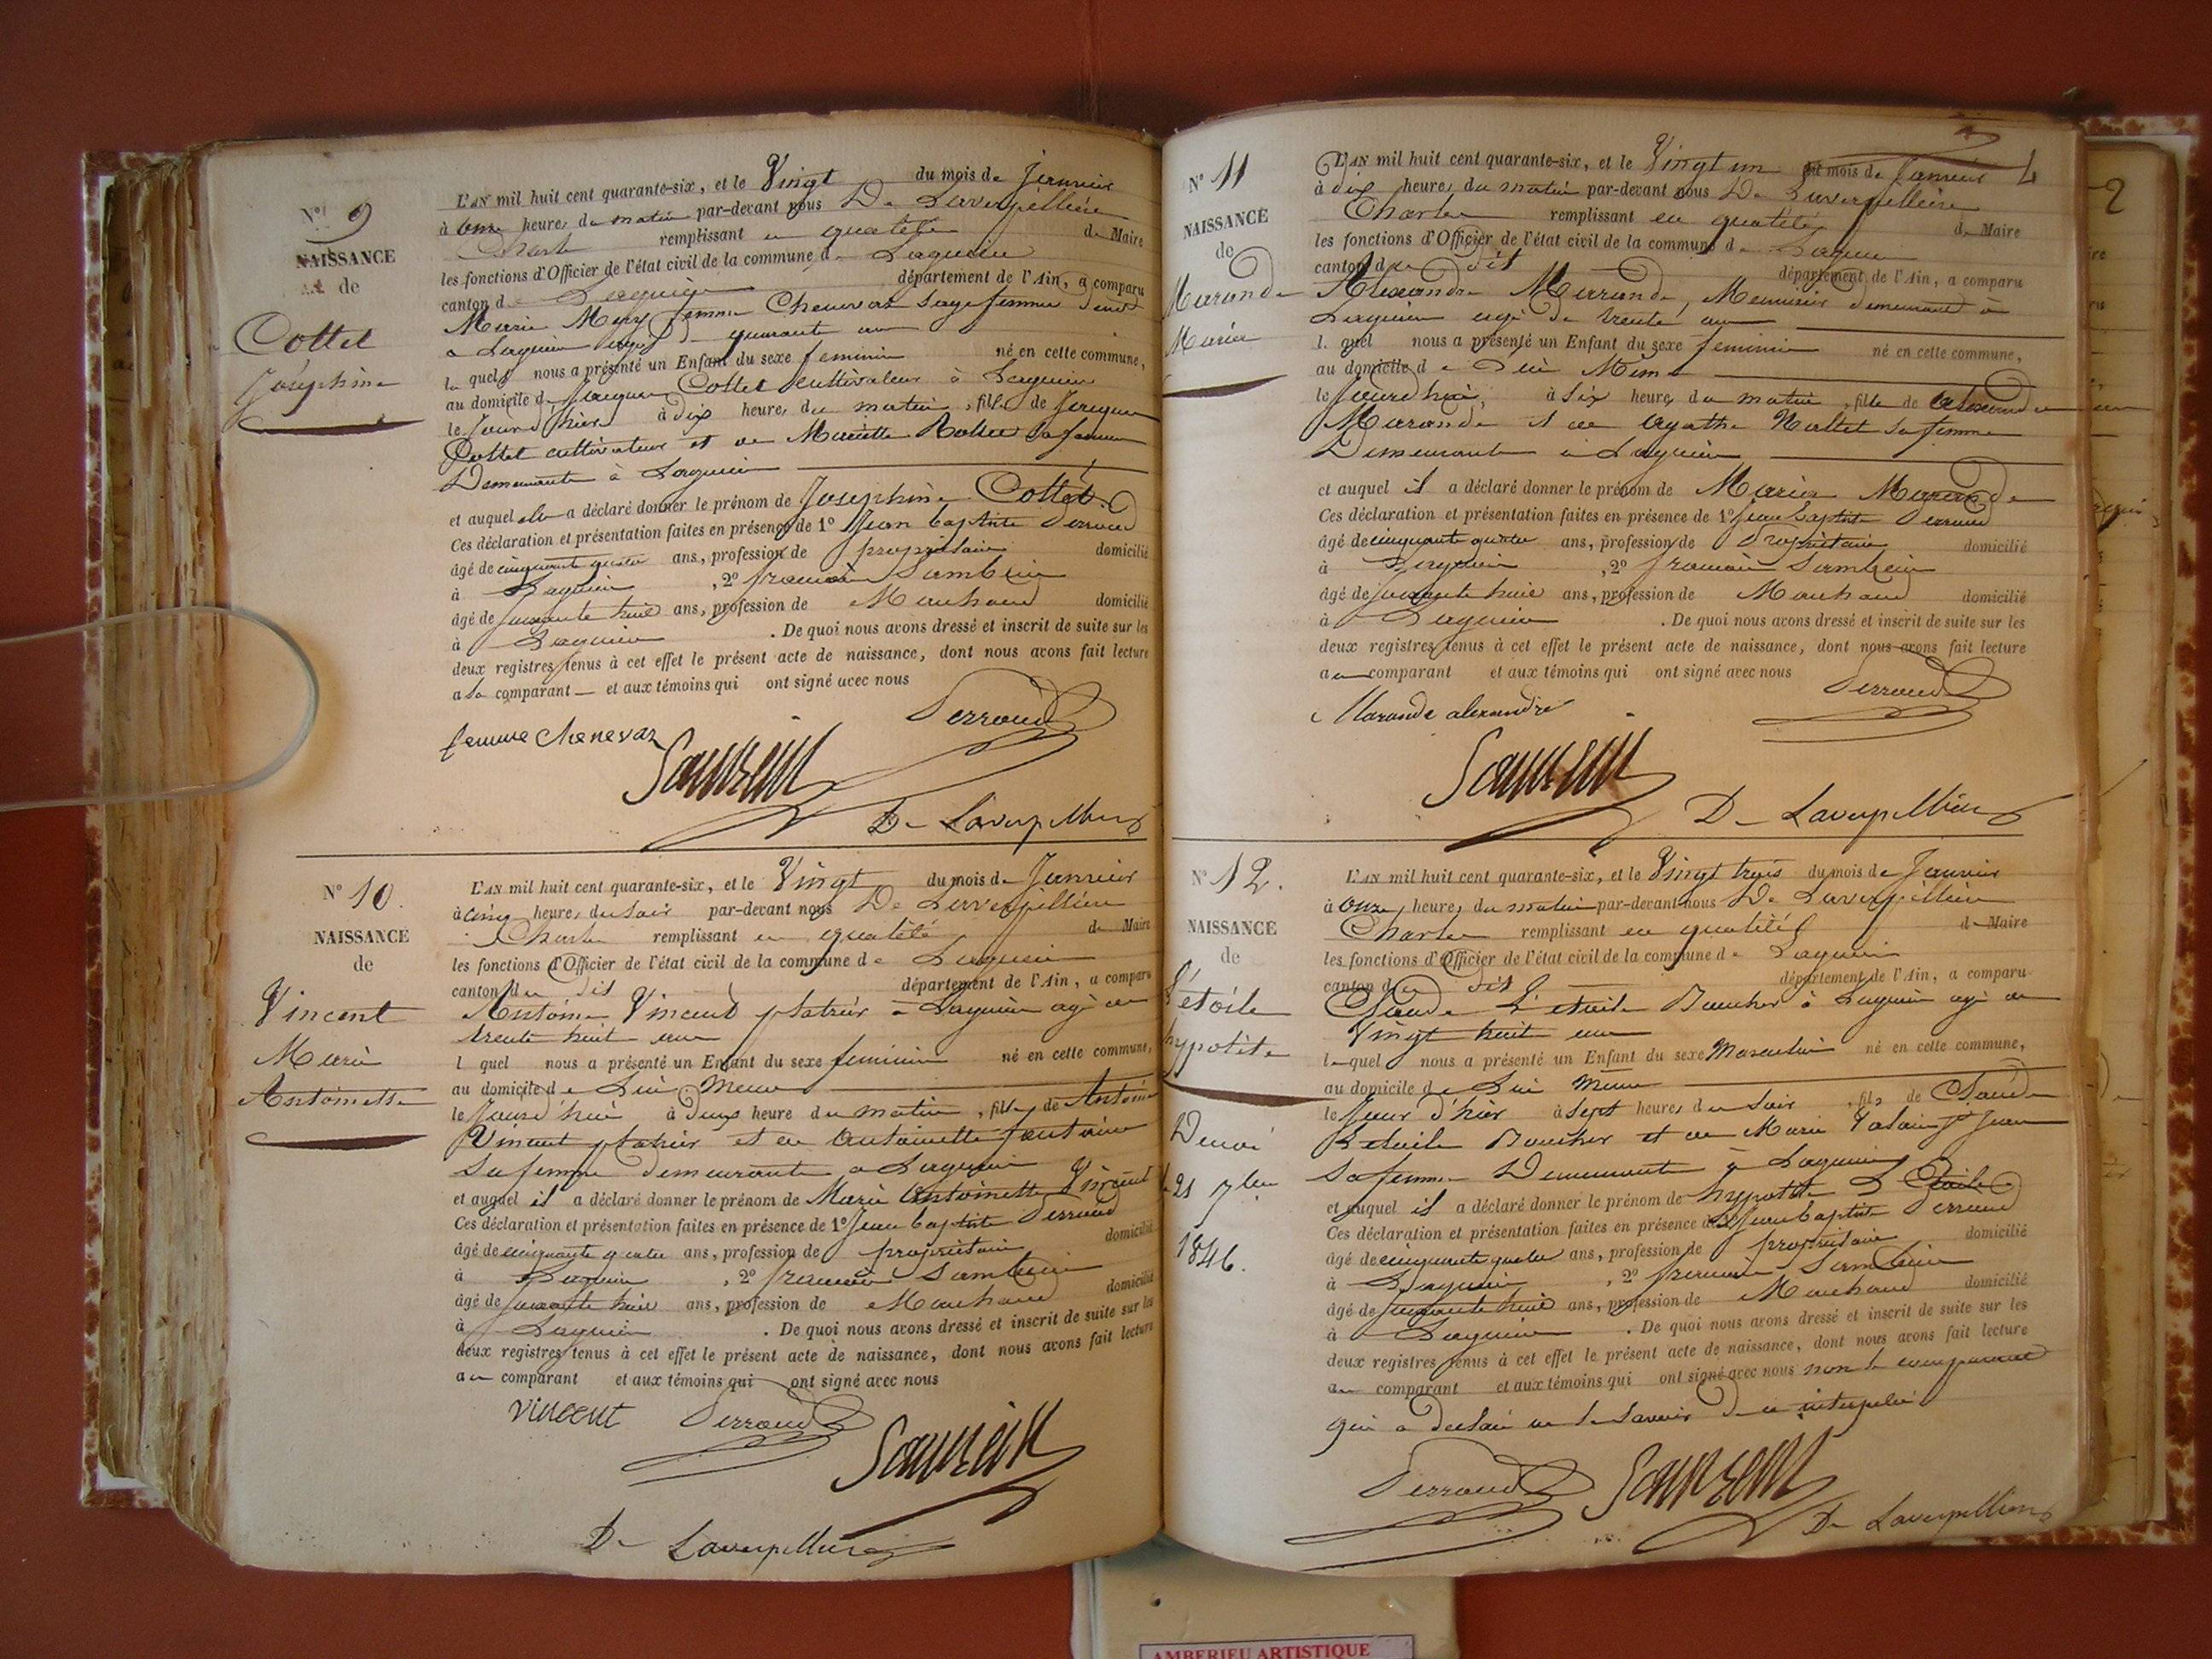 N° 9
NAISSANCE
de
Cottet
Joséphine
L'AN mil huit cent quarante-six, et le Vingt du mois de Janvier
à onze heures du matin par-devant nous De Laverpillière
Charle remplissant en qualité de Maire
les fonctions d'Officier de l'état civil de la commune de Lagnieu
canton de Lagnieu département de l'Ain, a comparu
Marie Mery femme Chenevaz sage femme demt
à Lagnieu agée de quarante ans
laquelle nous a présenté un Enfant du sexe feminin né en cette commune,
au domicile de Jacques Cottet cultivateur à Lagnieu
le Jour d'hier à dix heures du matin, fille de Jacques
Cottet cultivateur et de Mariette sa femme
Demeurante à Lagnieu
et auquel elle a déclaré donner le prénom de Joséphine Cottet
Ces déclaration et présentation faites en présence de 1° Jean baptiste Perroud
âgé de cinquante quatre ans, profession de propriétaire domicilié
à Lagnieu, 2° françois
âgé de soixante huit ans, profession de Marchand domicilié
à Lagnieu. De quoi nous avons dressé et inscrit de suite sur les
deux registres tenus à cet effet le présent acte de naissance, dont nous avons fait lecture
a la comparant et aux témoins qui ont signé avec nous
femme chenevaz Perroud
De Laverpillière
N° 10.
NAISSANCE
de
Vincent
Marie
Antoinette
L'AN mil huit cent quarante-six, et le Vingt du mois de Janvier
à cinq heures du soir par-devant nous De Laverpillière
Charle remplissant en qualité de Maire
les fonctions d'Officier de l'état civil de la commune de Lagnieu
canton du dit département de l'Ain, a comparu
Antoine Vincent platrier à Lagnieu agé de
trente huit ans
lequel nous a présenté un Enfant du sexe feminin né en cette commune,
au domicile de Lui Meme
le Jourd'hui à deux heure du matin, fille de Antoine
Vincent platrier et de Antoinette fontaine
sa femme demeurante a Lagnieu
et auquel il a déclaré donner le prénom de Marie Antoinette Vincent
Ces déclaration et présentation faites en présence de 1° Jean baptiste Perroud
âgé de cinquante quatre ans, profession de propriétaire domicilié
à Lagnieu, 2° françois
âgé de soixante huit ans, profession de Marchand domicilié
à Lagnieu. De quoi nous avons dressé et inscrit de suite sur les
deux registres tenus à cet effet le présent acte de naissance, dont nous avons fait lecture
au comparant et aux témoins qui ont signé avec nous
vincent Perroud
De Laverpillière
N° 11
NAISSANCE
de
Marande
Maria
L'AN mil huit cent quarante-six, et le Vingt un du mois de Janvier 4
à dix heures du matin par-devant nous De Laverpillière
Charles remplissant en qualité de Maire
les fonctions d'Officier de l'état civil de la commune de Lagnieu
canton du dit département de l'Ain, a comparu
Alexandre Marande, Menuisier demeurant à
Lagnieu agé de trente ans
lequel nous a présenté un Enfant du sexe feminin né en cette commune,
au domicile de Lui Meme
le Jourd'hui, à six heures du matin, fille de alexandre
Marande et de Agathe sa femme
Demeurante à Lagnieu
et auquel il a déclaré donner le prénom de Maria Marande
Ces déclaration et présentation faites en présence de 1° Jean baptiste Perroud
âgé de cinquante quatre ans, profession de Propriétaire domicilié
à Lagnieu, 2° françois
âgé de soixante huit ans, profession de Marchand domicilié
à Lagnieu. De quoi nous avons dressé et inscrit de suite sur les
deux registres tenus à cet effet le présent acte de naissance, dont nous avons fait lecture
au comparant et aux témoins qui ont signé avec nous
Marande alexandre Perroud
De Laverpillière
N° 12.
NAISSANCE
de
L'étoile
hypolite
L'AN mil huit cent quarante-six, et le Vingt trois du mois de Janvier
à onze heures du matin par-devant nous De Laverpillière
Charles remplissant en qualité de Maire
les fonctions d'Officier de l'état civil de la commune de Lagnieu
canton du dit département de l'Ain, a comparu
Claude L'etoile Boucher à Lagnieu agé de
Vingt huit ans
lequel nous a présenté un Enfant du sexe Masculin né en cette commune,
au domicile de Lui Meme
le Jour d'hier à sept heures du soir, fils de Claude
L'etoile Boucher et de Marie
sa femme Demeurante à Lagnieu
et auquel il a déclaré donner le prénom de hypolite L'Etoile
Ces déclaration et présentation faites en présence de 1° Jean baptiste Perroud
âgé de cinquante quatre ans, profession de propriétaire domicilié
à Lagnieu, 2° françois
âgé de soixante huit ans, profession de Marchand domicilié
à Lagnieu. De quoi nous avons dressé et inscrit de suite sur les
deux registres tenus à cet effet le présent acte de naissance, dont nous avons fait lecture
au comparant et aux témoins qui ont signé avec nous non le comparant
qui a déclaré ne le savoir de ce interpellé
Perroud
De Laverpillière
21 7bre
1846.
2
AMBERIEU ARTISTIQUE